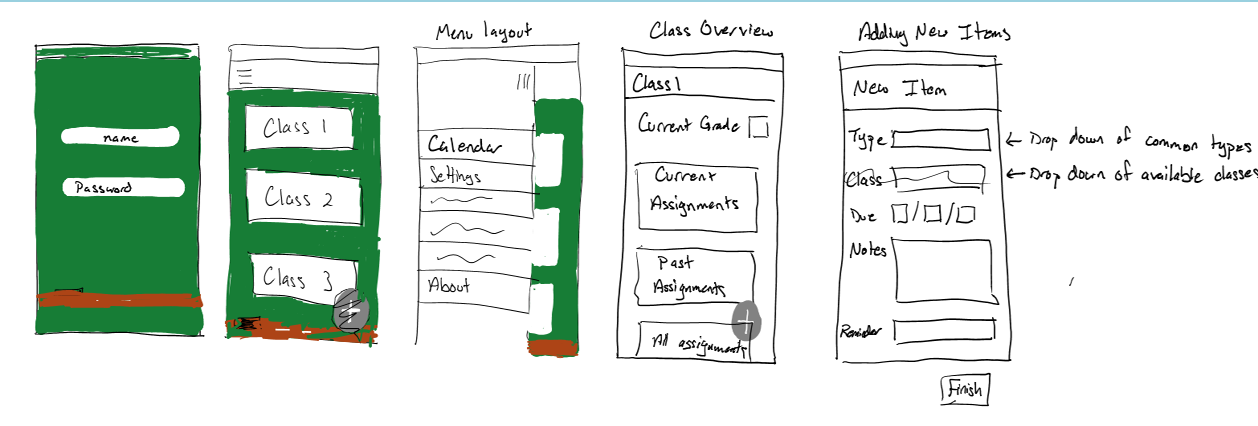 name
Password
Class 1
Class 2
Class 3
+
Menu layout
Calendar
Settings
About
Class Overview
Class 1
Current Grade
Current
Assignments
Past
Assignments
All assignments
+
Adding New Items
New Item
Type
← Drop down of common types
Class
← Drop down of available classes
Due / /
Notes
Reminder
Finish